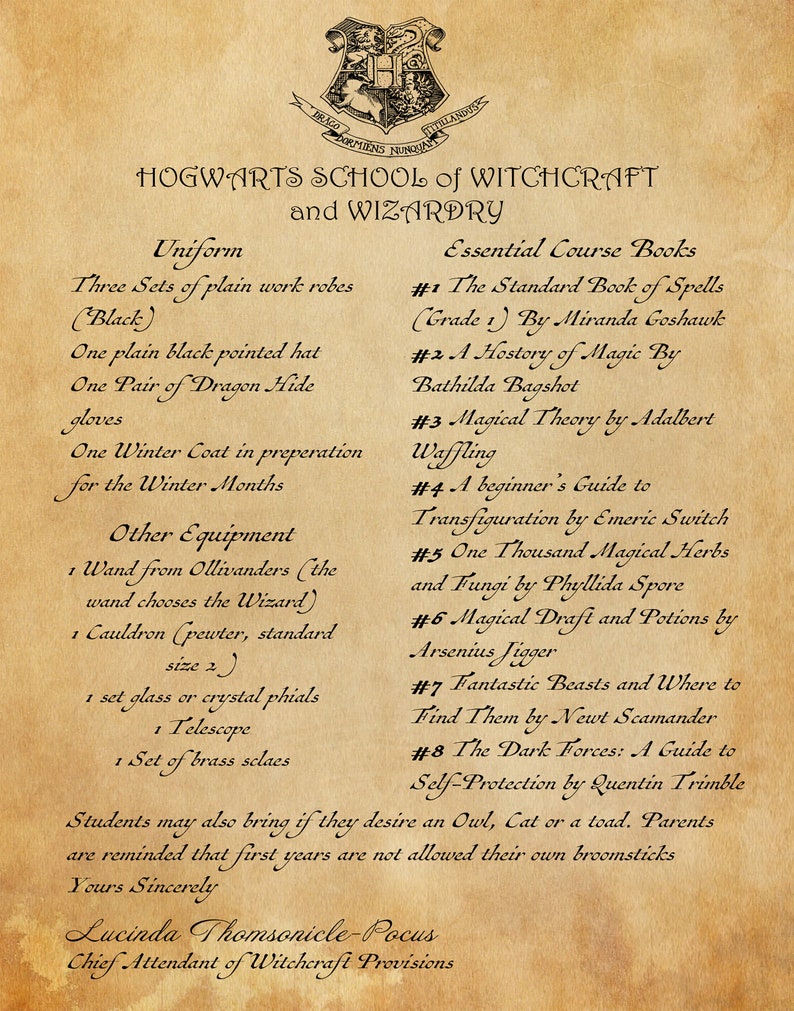 DRAGO DORMIENS NUNQUAM TITILLANDUS
HOGWARTS SCHOOL of WITCHCRAFT
and WIZARDRY
Uniform
Three Sets of plain work robes
(Black)
One plain black pointed hat
One Pair of Dragon Hide
gloves
One Winter Coat in preperation
for the Winter Months
Other Equipment
1 Wand from Ollivanders (the
wand chooses the Wizard)
1 Cauldron (pewter, standard
size 2 )
1 set glass or crystal phials
1 Telescope
1 Set of brass sclaes
Essential Course Books
#1 The Standard Book of Spells
(Grade 1) By Miranda Goshawk
#2 A Hostory of Magic By
Bathilda Bagshot
#3 Magical Theory by Adalbert
Waffling
#4 A beginner's Guide to
Transfiguration by Emeric Switch
#5 One Thousand Magical Herbs
and Fungi by Phyllida Spore
#6 Magical Draft and Potions by
Arsenius Jigger
#7 Fantastic Beasts and Where to
Find Them by Newt Scamander
#8 The Dark Forces: A Guide to
Self-Protection by Quentin Trimble
Students may also bring if they desire an Owl, Cat or a toad. Parents
are reminded that first years are not allowed their own broomsticks
Yours Sincerely
Lucinda Thomsonicle-Pocus
Chief Attendant of Witchcraft Provisions